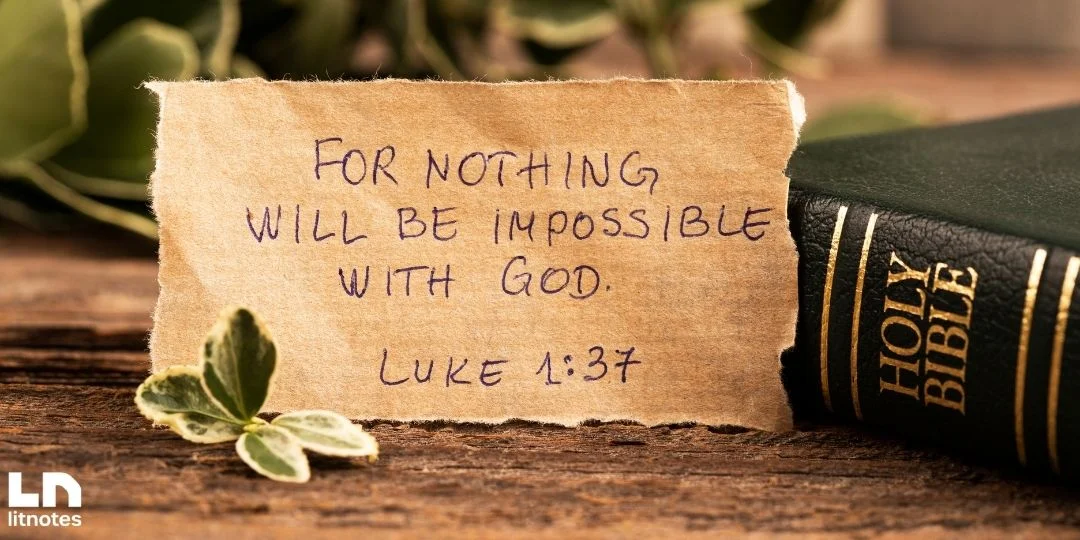 FOR NOTHING
WILL BE IMPOSSIBLE
WITH GOD.
LUKE 1:37
HOLY
BIBLE
LN
litnotes